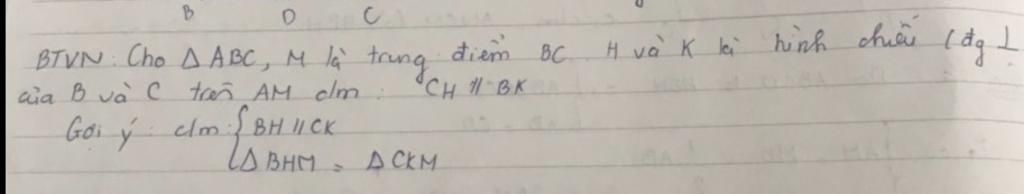 B D C
BTVN: Cho Δ ABC, M là trung điểm BC H và K là hình chiếu (đg ⊥
của B và C trên AM c/m: CH // BK
Gợi ý: c/m { BH // CK
Δ BHM = Δ CKM